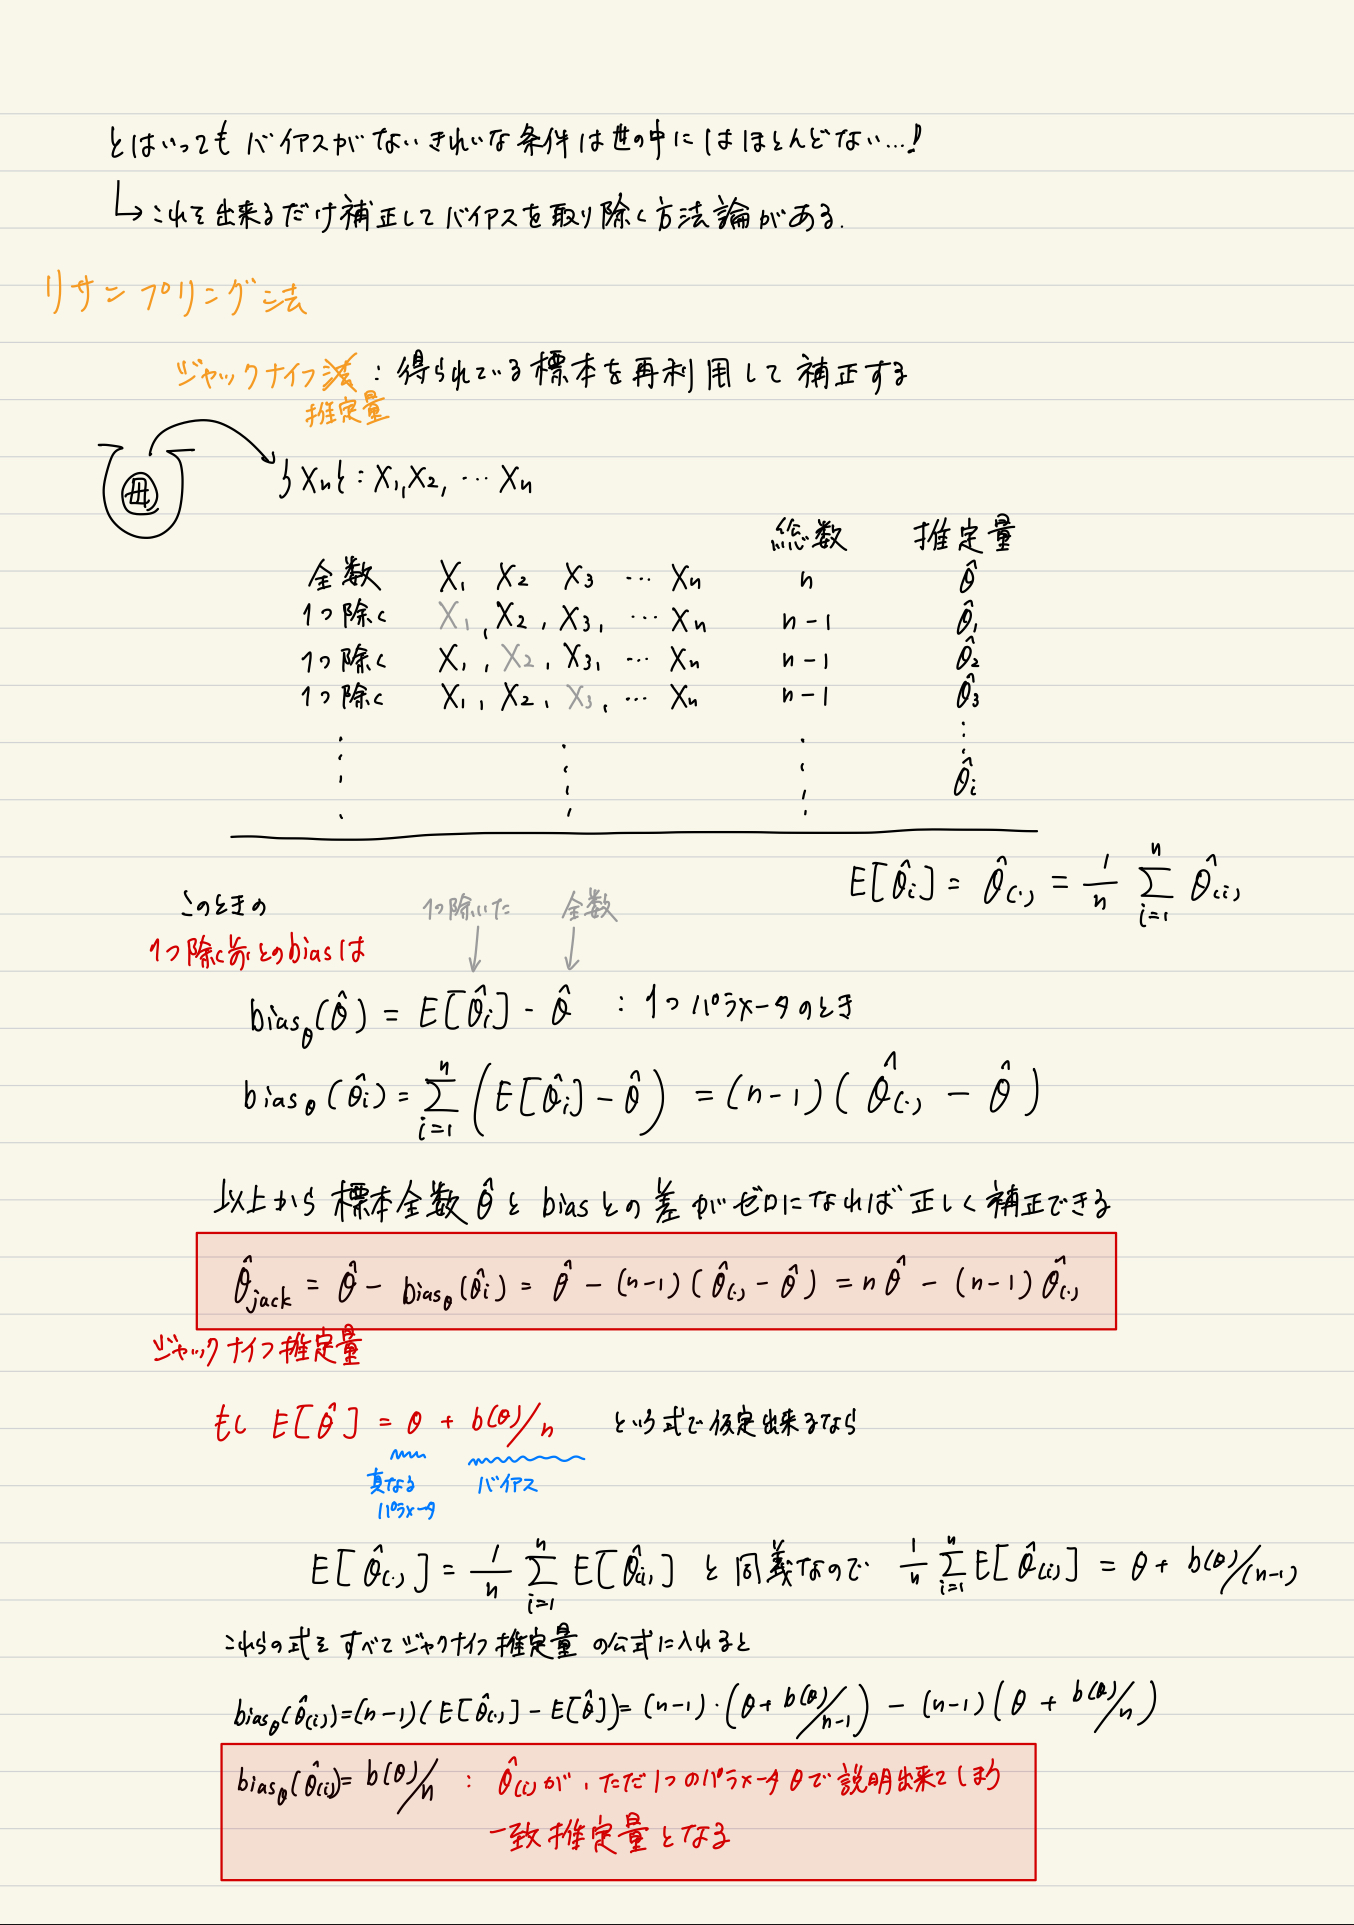 とはいっても バイアスがないきれいな条件は世の中にはほとんどない…!
↳これを出来るだけ補正してバイアスを取り除く方法論がある.
リサンプリング法
ジャックナイフ法 : 得られている標本を再利用して補正する
推定量
母 {Xn} : X₁, X₂, … Xn
総数 推定量
全数 X₁ X₂ X₃ … Xn n θ̂
1つ除く X₁, X₂, X₃, … Xn n-1 θ̂₁
1つ除く X₁, X₂, X₃, … Xn n-1 θ̂₂
1つ除く X₁, X₂, X₃, … Xn n-1 θ̂₃
θ̂i
E[θ̂i] = θ̂(.) = 1/n Σ_{i=1}^{n} θ̂(i)
このときの 1つ除いた 全数
1つ除く前とのbiasは
biasθ(θ̂) = E[θ̂i] - θ̂ : 1つパラメータのとき
biasθ(θ̂i) = Σ_{i=1}^{n} (E[θ̂i] - θ̂) = (n-1)(θ̂(.) - θ̂)
以上から 標本全数 θ̂ と bias との差がゼロになれば正しく補正できる
θ̂jack = θ̂ - biasθ(θ̂i) = θ̂ - (n-1)(θ̂(.) - θ̂) = nθ̂ - (n-1)θ̂(.)
ジャックナイフ推定量
もし E[θ̂] = θ + b(θ)/n という式で仮定出来るなら
真なる バイアス
パラメータ
E[θ̂(.)] = 1/n Σ_{i=1}^{n} E[θ̂(i)] と同義なので 1/n Σ_{i=1}^{n} E[θ̂(i)] = θ + b(θ)/(n-1)
これらの式をすべてジャクナイフ推定量の公式に入れると
biasθ(θ̂(i)) = (n-1)(E[θ̂(.)] - E[θ̂]) = (n-1)·(θ + b(θ)/n-1) - (n-1)(θ + b(θ)/n)
biasθ(θ̂(i)) = b(θ)/n : θ̂(i)が、ただ1つのパラメータθで説明出来てしまう
一致推定量となる